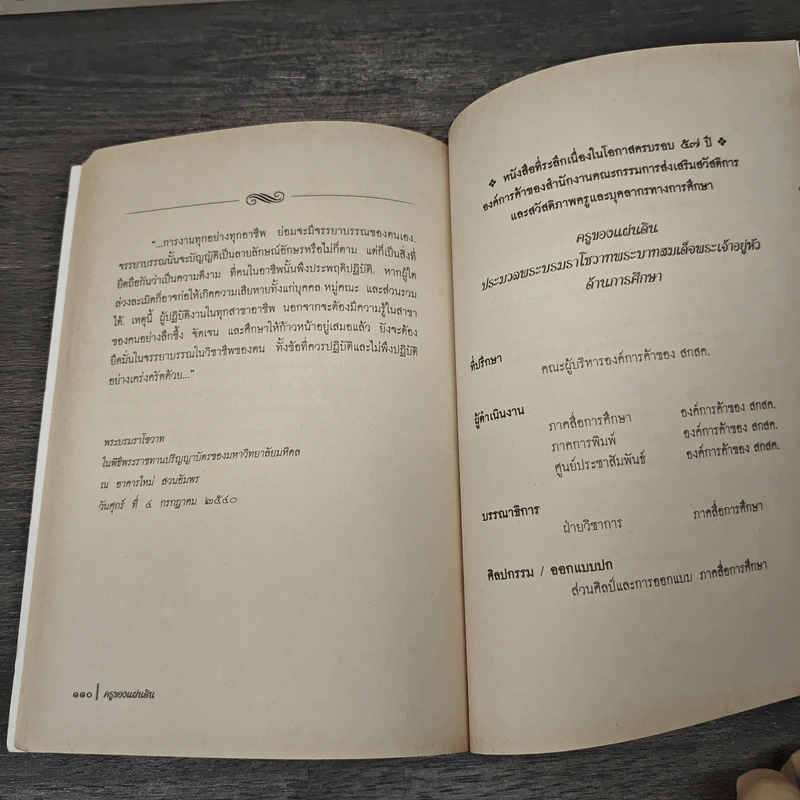 "...การงานทุกอย่างทุกอาชีพ ย่อมจะมีจรรยาบรรณของตนเอง.
จรรยาบรรณนั้นจะบัญญัติเป็นลายลักษณ์อักษรหรือไม่ก็ตาม แต่ก็เป็นสิ่งที่
ยึดถือกันว่าเป็นความดีงาม ที่คนในอาชีพนั้นพึงประพฤติปฏิบัติ. หากผู้ใด
ล่วงละเมิดก็อาจก่อให้เกิดความเสียหายทั้งแก่บุคคล หมู่คณะ และส่วนรวม
ได้. เหตุนี้ ผู้ปฏิบัติงานในทุกสาขาอาชีพ นอกจากจะต้องมีความรู้ในสาขา
ของตนอย่างลึกซึ้ง จัดเจน และศึกษาให้ก้าวหน้าอยู่เสมอแล้ว ยังจะต้อง
ยึดมั่นในจรรยาบรรณในวิชาชีพของตน ทั้งข้อที่ควรปฏิบัติและไม่พึงปฏิบัติ
อย่างเคร่งครัดด้วย..."
พระบรมราโชวาท
ในพิธีพระราชทานปริญญาบัตรของมหาวิทยาลัยมหิดล
ณ อาคารใหม่ สวนอัมพร
วันศุกร์ ที่ ๔ กรกฎาคม ๒๕๔๐
๑๑๐ | ครูของแผ่นดิน
❖ หนังสือที่ระลึกเนื่องในโอกาสครบรอบ ๕๗ ปี ❖
องค์การค้าของสำนักงานคณะกรรมการส่งเสริมสวัสดิการ
และสวัสดิภาพครูและบุคลากรทางการศึกษา
ครูของแผ่นดิน
ประมวลพระบรมราโชวาทพระบาทสมเด็จพระเจ้าอยู่หัว
ด้านการศึกษา
ที่ปรึกษา
คณะผู้บริหารองค์การค้าของ สกสค.
ผู้ดำเนินงาน
ภาคสื่อการศึกษา องค์การค้าของ สกสค.
ภาคการพิมพ์ องค์การค้าของ สกสค.
ศูนย์ประชาสัมพันธ์ องค์การค้าของ สกสค.
บรรณาธิการ
ฝ่ายวิชาการ ภาคสื่อการศึกษา
ศิลปกรรม / ออกแบบปก
ส่วนศิลป์และการออกแบบ ภาคสื่อการศึกษา